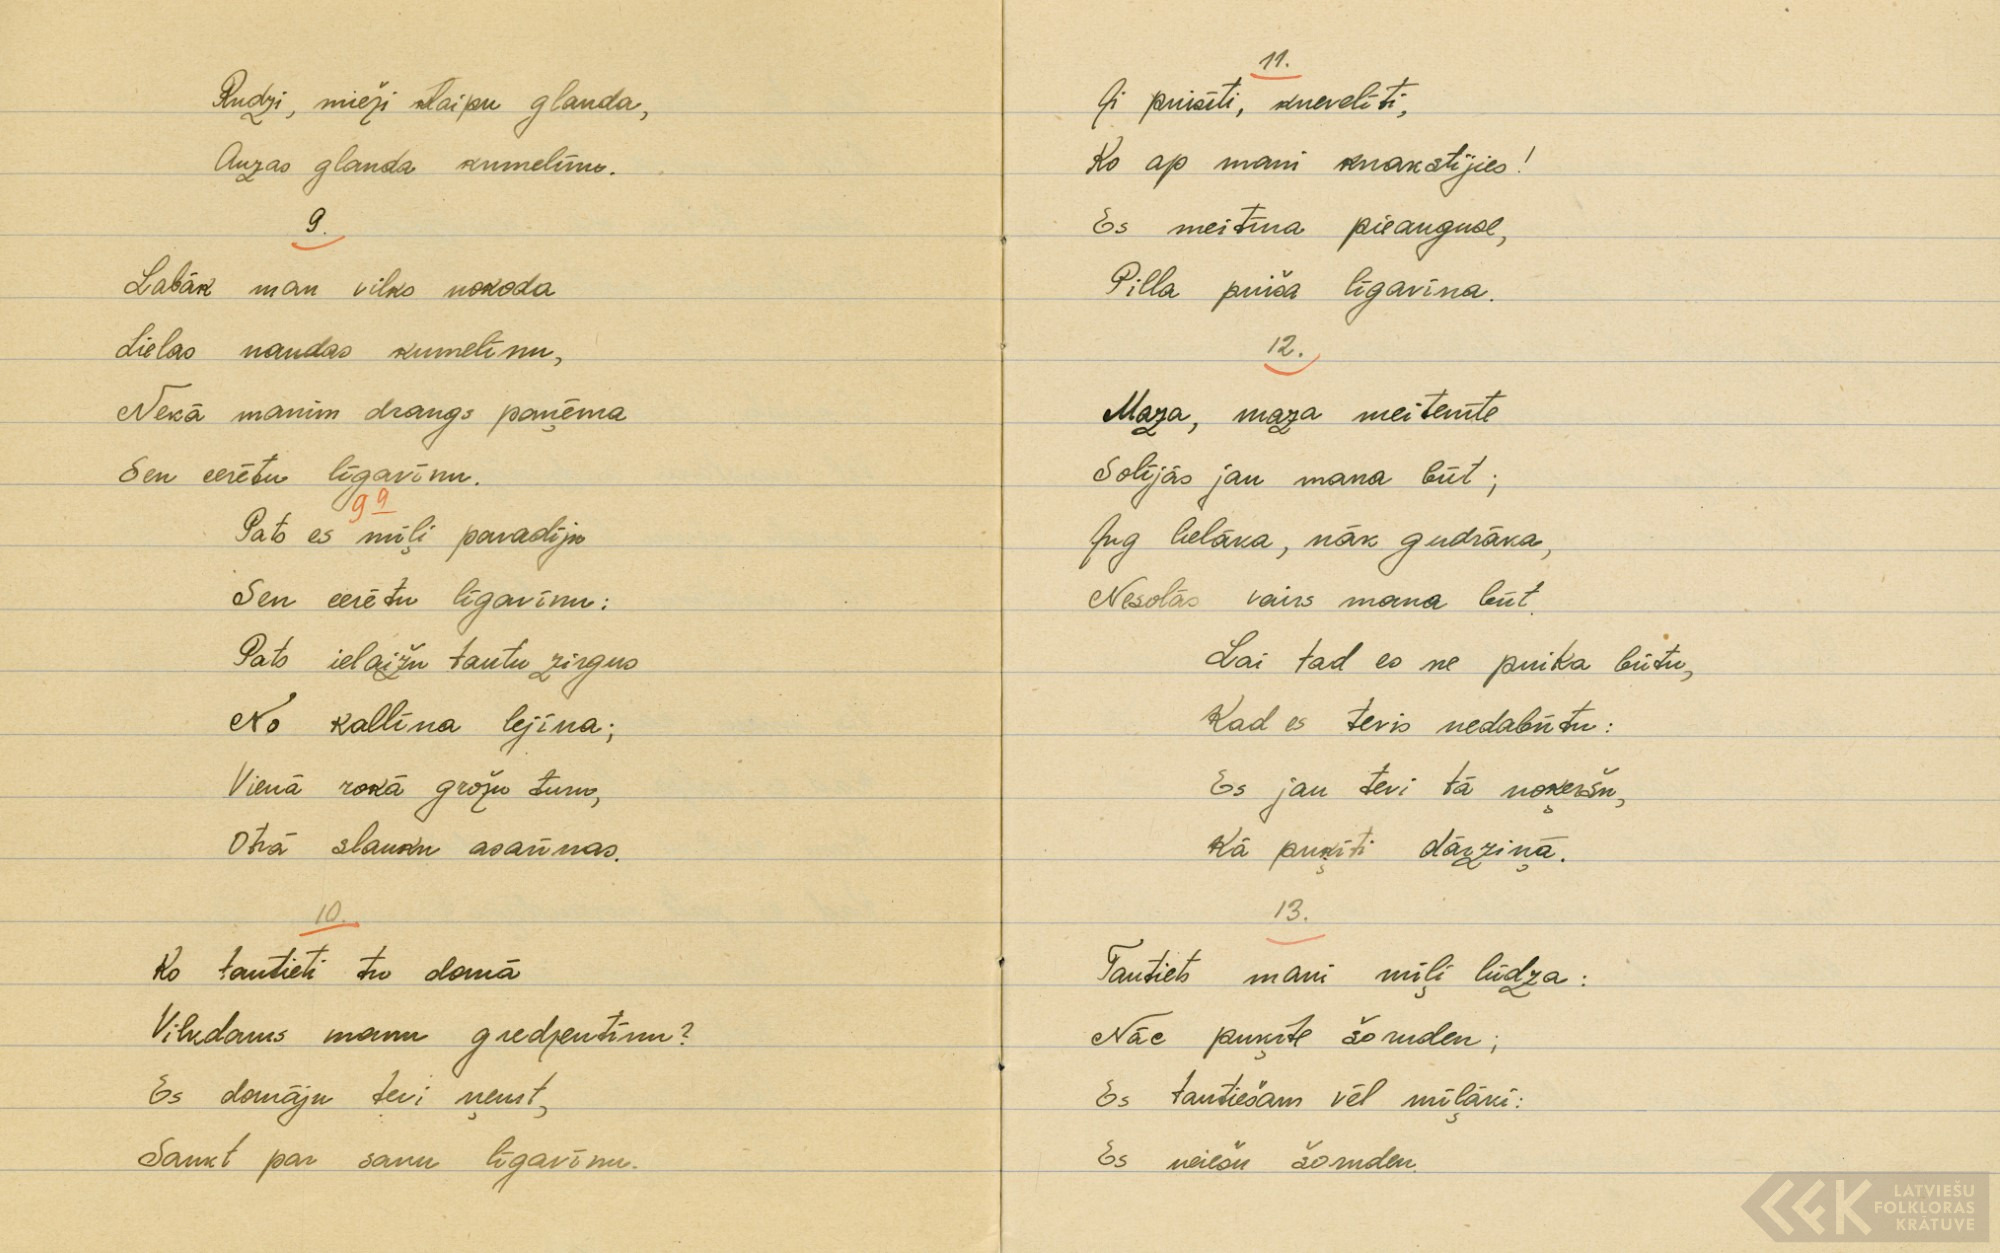 Rudzi, mieži staipu glauda,
Auzas glauda kumelīnu.
9.
Labāk man vilks nokoda
Lielas naudas kumelīnu,
Nekā manim draugs paņēma
Sen cerētu līgavīnu.
9 a
Pats es mīļi pavadīju
Sen cerētu līgavīnu:
Pats ielaižu tautu zirgus
No kallīna lejīna;
Vienā rokā grožu turu,
Otrā slauku asarīnas.
10.
Ko tautieti tu domā
Vilkdams manu gredzentīnu?
Es domāju tevi ņemt,
Saukt par savu līgavīnu.
11.
Ai puisīti, knevelīti,
Ko ap mani knakstījies!
Es meitīna pieauguse,
Pilla puiša līgavīna.
12.
Maza, maza meitenīte
Solījās jau mana būt;
Aug lielāka, nāk gudrāka,
Nesolās vairs mana būt.
Lai tad es ne puika būtu,
Kad es tevis nedabūtu:
Es jau tevi tā noķeršu,
Kā puķīti dārziņā.
13.
Tautiets mani mīļi lūdza:
Nāc puķīte šoruden;
Es tautiešam vēl mīļāki:
Es neiešu šoruden.
LATVIEŠU
FOLKLORAS
KRĀTUVE